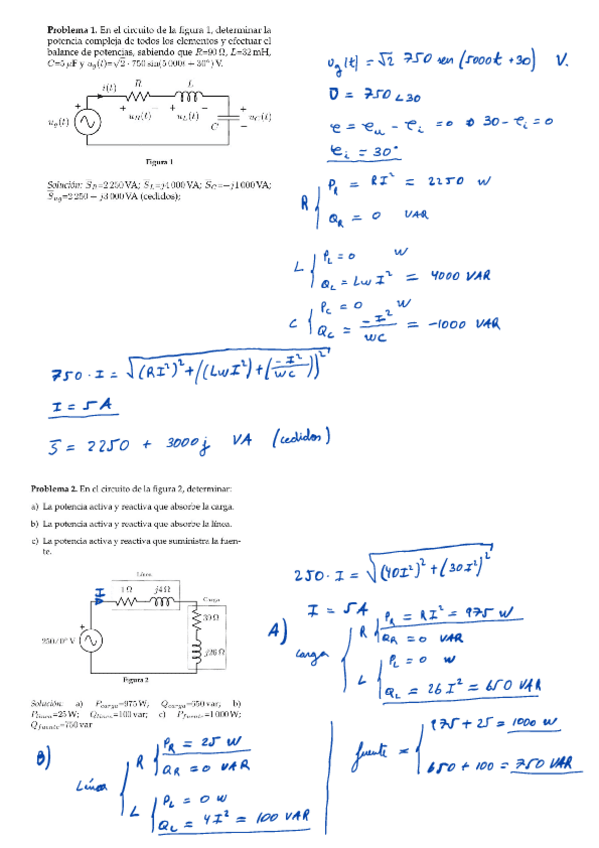 Problema 1. En el circuito de la figura 1, determinar la
potencia compleja de todos los elementos y efectuar el
balance de potencias, sabiendo que R=90 Ω, L=32 mH,
C=5 μF y u_g(t)=√2 · 750 sin(5 000t + 30°) V.
i(t) R L
+ − + −
u_g(t) + u_R(t) u_L(t) C + u_C(t) −
Figura 1
Solución: S̅_R=2 250 VA; S̅_L=j4 000 VA; S̅_C=−j1 000 VA;
S̅_ug=2 250 − j3 000 VA (cedidos);
u_g(t) = √2 750 sen (5000t + 30) V.
U = 750∠30
φ = φ_u − φ_i = 0 → 30 − φ_i = 0
φ_i = 30°
R { P_R = RI² = 2250 W
Q_R = 0 VAR
L { P_L = 0 W
Q_L = LωI² = 4000 VAR
C { P_C = 0 W
Q_C = −I²/ωC = −1000 VAR
750 · I = √((RI²)² + ((LωI²) + (−I²/ωC))²)
I = 5 A
S̅ = 2250 + 3000j VA (cedidos)
Problema 2. En el circuito de la figura 2, determinar:
a) La potencia activa y reactiva que absorbe la carga.
b) La potencia activa y reactiva que absorbe la línea.
c) La potencia activa y reactiva que suministra la fuen-
te.
Línea
I 1 Ω j4 Ω
Carga
39 Ω
250/0° V +
j26 Ω
Figura 2
Solución: a) P_carga=975 W; Q_carga=650 var; b)
P_línea=25 W; Q_línea=100 var; c) P_fuente=1 000 W;
Q_fuente=750 var
250 · I = √((40I²)² + (30I²)²)
I = 5A
A) carga { R { P_R = RI² = 975 W
Q_R = 0 VAR
L { P_L = 0 W
Q_L = 26 I² = 650 VAR
B) Línea { R { P_R = 25 W
Q_R = 0 VAR
L { P_L = 0 W
Q_L = 4I² = 100 VAR
fuente = { 975 + 25 = 1000 W
650 + 100 = 750 VAR